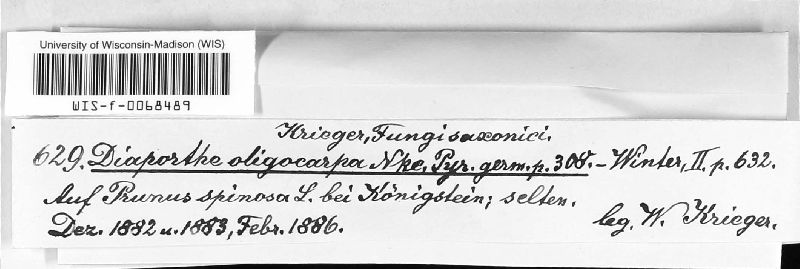 University of Wisconsin-Madison (WIS)
WIS-f-0068489
Krieger, Fungi saxonici.
629. Diaporthe oligocarpa Nke, Pyr. germ. p. 308. – Winter, II. p. 632.
Auf Prunus spinosa L. bei Königstein; selten.
Dez. 1882 u. 1883, Febr. 1886.
leg. W. Krieger.